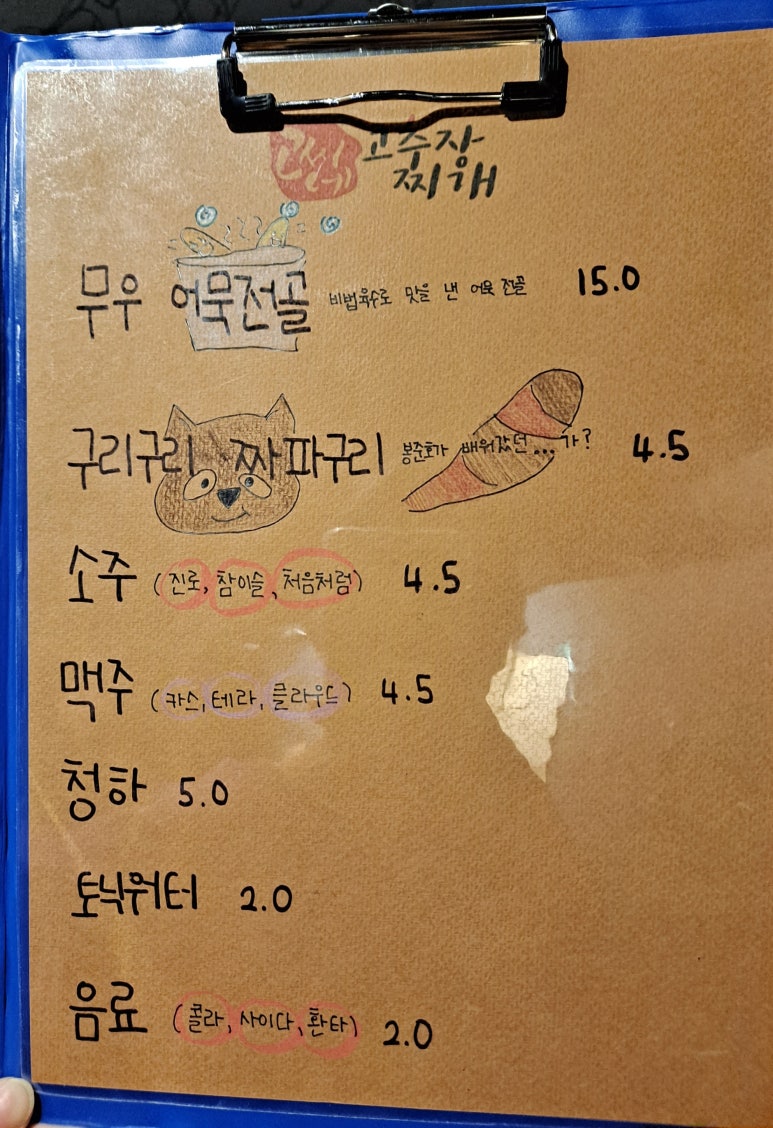 고추장
찌개
무우 어묵전골 비법육수로 맛을 낸 어묵 전골 15.0
구리구리 짜파구리 봉준호가 배워갔던...가? 4.5
소주 (진로, 참이슬, 처음처럼) 4.5
맥주 (카스, 테라, 클라우드) 4.5
청하 5.0
토닉워터 2.0
음료 (콜라, 사이다, 환타) 2.0